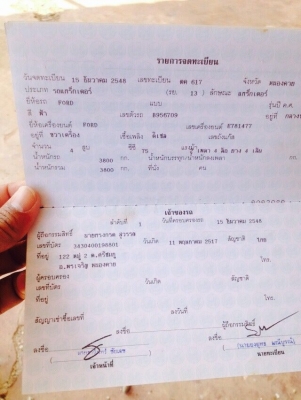 รายการจดทะเบียน
วันจดทะเบียน 15 ธันวาคม 2548 เลขทะเบียน ตค 617 จังหวัด หนองคาย
ประเภท รถแทร็กเตอร์ (รย. 13 ) ลักษณะ แทร็กเตอร์
ยี่ห้อรถ FORD แบบ รุ่นปี ค.ศ.
สี ฟ้า เลขตัวรถ B956709 อยู่ที่
ยี่ห้อเครื่องยนต์ FORD เลขเครื่องยนต์ E781477
อยู่ที่ ขวาเครื่อง เชื้อเพลิง ดีเซล เลขถังแก๊ส
จำนวน 4 สูบ ซีซี 75 แรงม้า เพลา 4 ล้อ ยาง 4 เส้น
น้ำหนักรถ 3800 กก. น้ำหนักบรรทุก/น้ำหนักลงเพลา กก.
น้ำหนักรวม 3800 กก. ที่นั่ง คน
เจ้าของรถ
ลำดับที่ 1 วันที่ครอบครองรถ 15 ธันวาคม 2548
ผู้ถือกรรมสิทธิ์
เลขที่บัตร 3430400198801 วันเกิด 11 พฤษภาคม 2517 สัญชาติ ไทย
ที่อยู่ 122 หมู่ 2 ต.ศรีชมภู
อ.พรเจริญ หนองคาย โทร.
ผู้ครอบครอง
เลขที่บัตร วันเกิด สัญชาติ
ที่อยู่ โทร.
สัญญาเช่าซื้อเลขที่ ลงวันที่
ผู้ถือกรรมสิทธิ์
ลงชื่อ ลงชื่อ
เจ้าหน้าที่ นายทะเบียน